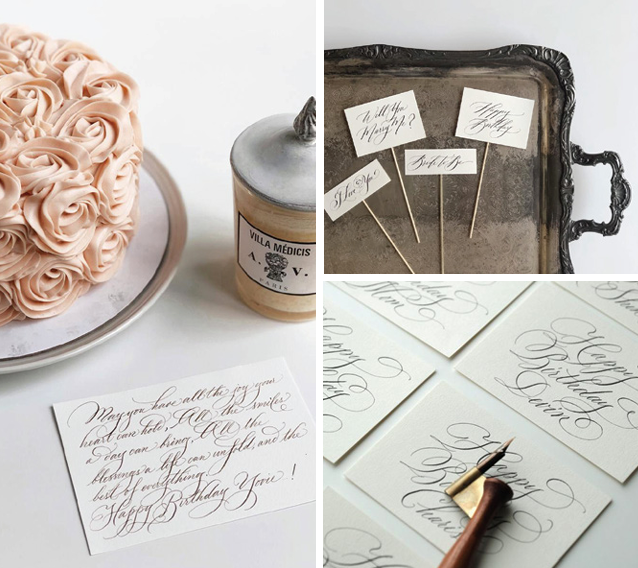 VILLA MÉDICIS
A. V.
PARIS
May you have all the joy your
heart can hold, All the smiles
a day can bring, All the
blessings a life can unfold, and the
best of everything!
Happy Birthday Yovie!
Will You
Marry Me?
Happy
Birthday
Bride to Be
I Love You!
Mom
Happy
Happy
Birthday
Devin
Happy